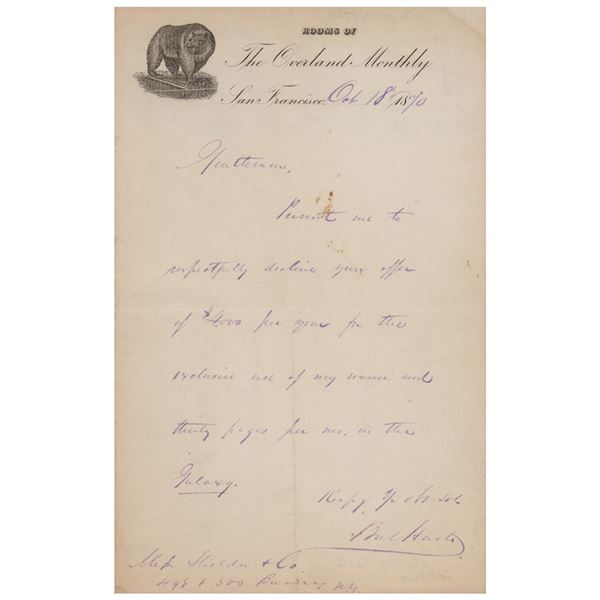 ROOMS OF
The Overland Monthly
San Francisco, Oct 18th 1870
Gentlemen,
Permit me to
respectfully decline your offer
of $4000 per year for the
exclusive use of my name and
thirty pages per no. in the
Galaxy.
Respy Yr obt Svt
Bret Harte
Mess Sheldon & Co
498 & 500 Broadway N.Y.